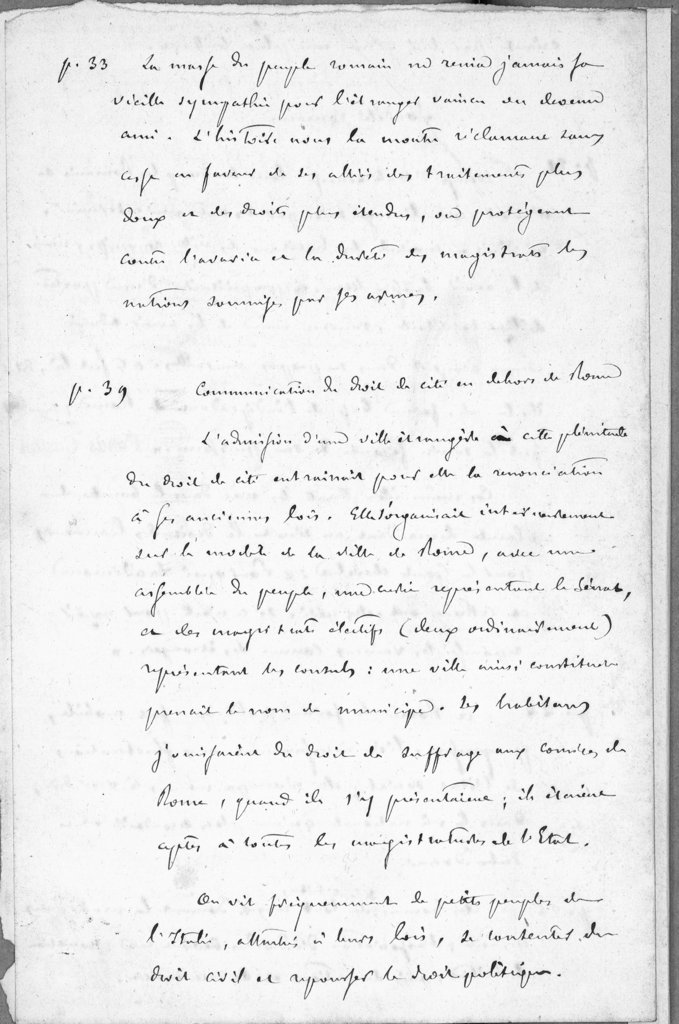 p. 33 La masse du peuple romain ne renia jamais sa
vieille sympathie pour l'étranger vaincu ou devenu
ami. L'histoire nous la montre réclamant sans
cesse en faveur de ses alliés des traitements plus
doux et des droits plus étendus, ou protégeant
contre l'avarice et la dureté des magistrats les
nations soumises par ses armes.
p. 39 Communication du droit de cité en dehors de Rome
L'admission d'une ville étrangère à cette plénitude
du droit de cité entrainait pour elle la renonciation
à ses anciennes lois. Elle s'organisait intérieurement
sur le modèle de la ville de Rome, avec une
assemblée du peuple, une curie représentant le Sénat,
et des magistrats électifs (deux ordinairement)
représentant les consuls : une ville ainsi constituée
prenait le nom de municipe. Les habitans
jouissaient du droit de suffrage aux comices de
Rome, quand ils s'y présentaient ; ils étaient
aptes à toutes les magistratures de l'Etat.
On vit fréquemment de petits peuples de
l'Italie, attachés à leurs lois, se contenter du
droit civil et repousser le droit politique.